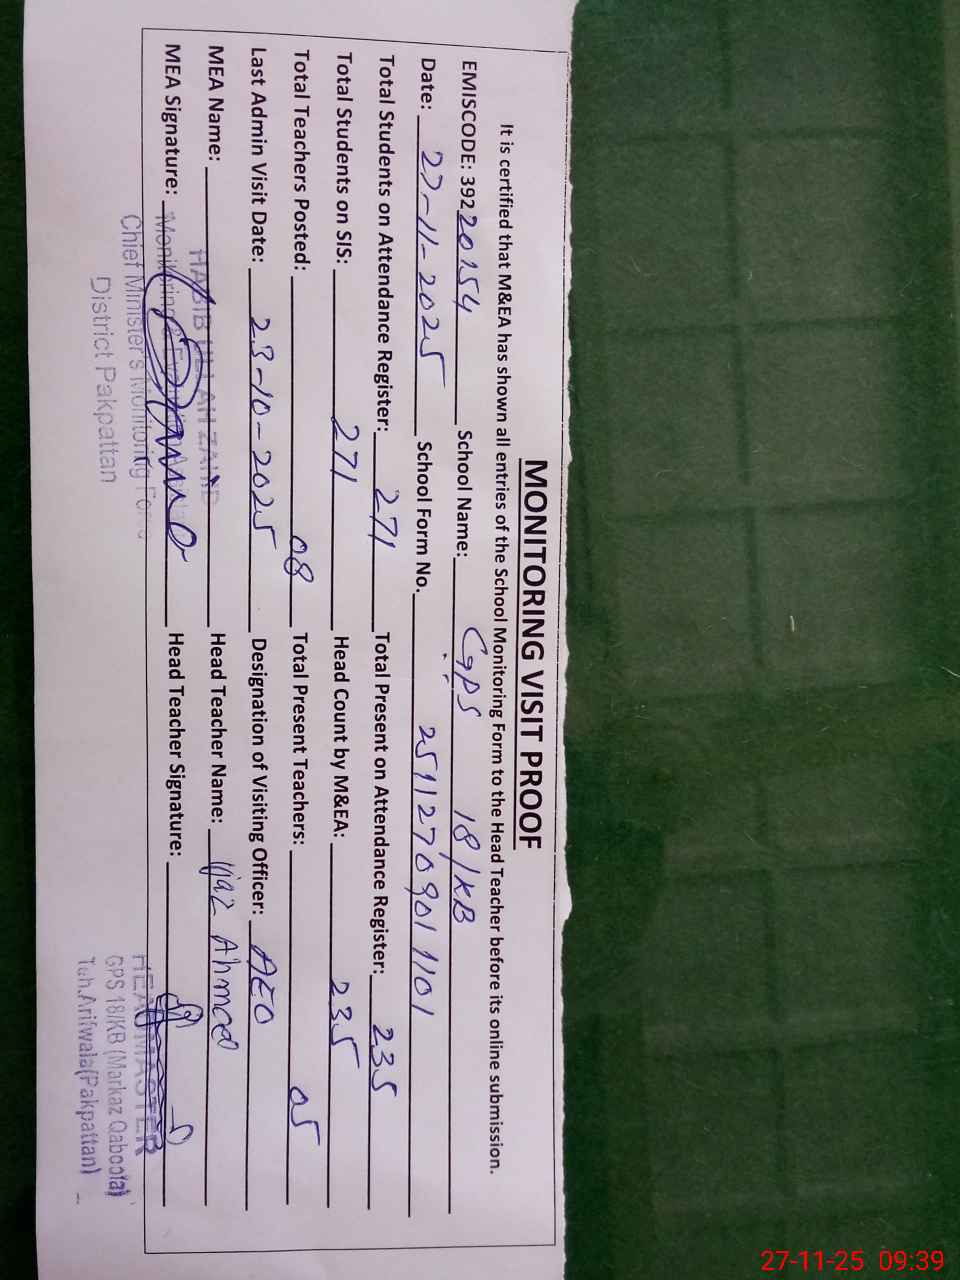 MONITORING VISIT PROOF
It is certified that M&EA has shown all entries of the School Monitoring Form to the Head Teacher before its online submission.
EMISCODE: 39220154 School Name: GPS 18/KB
Date: 27-11-2025 School Form No. 251127090 1101
Total Students on Attendance Register: 271 Total Present on Attendance Register: 235
Total Students on SIS: 271 Head Count by M&EA: 235
Total Teachers Posted: 08 Total Present Teachers: 05
Last Admin Visit Date: 23-10-2025 Designation of Visiting Officer: AEO
MEA Name: HABIB ULLAH ZAHID Head Teacher Name: Ijaz Ahmad
MEA Signature: Head Teacher Signature:
Monitoring &
Chief Minister's Monitoring Force
District Pakpattan
HEADMASTER
GPS 18/KB (Markaz Qaboola)
Teh.Arifwala(Pakpattan)
27-11-25 09:39